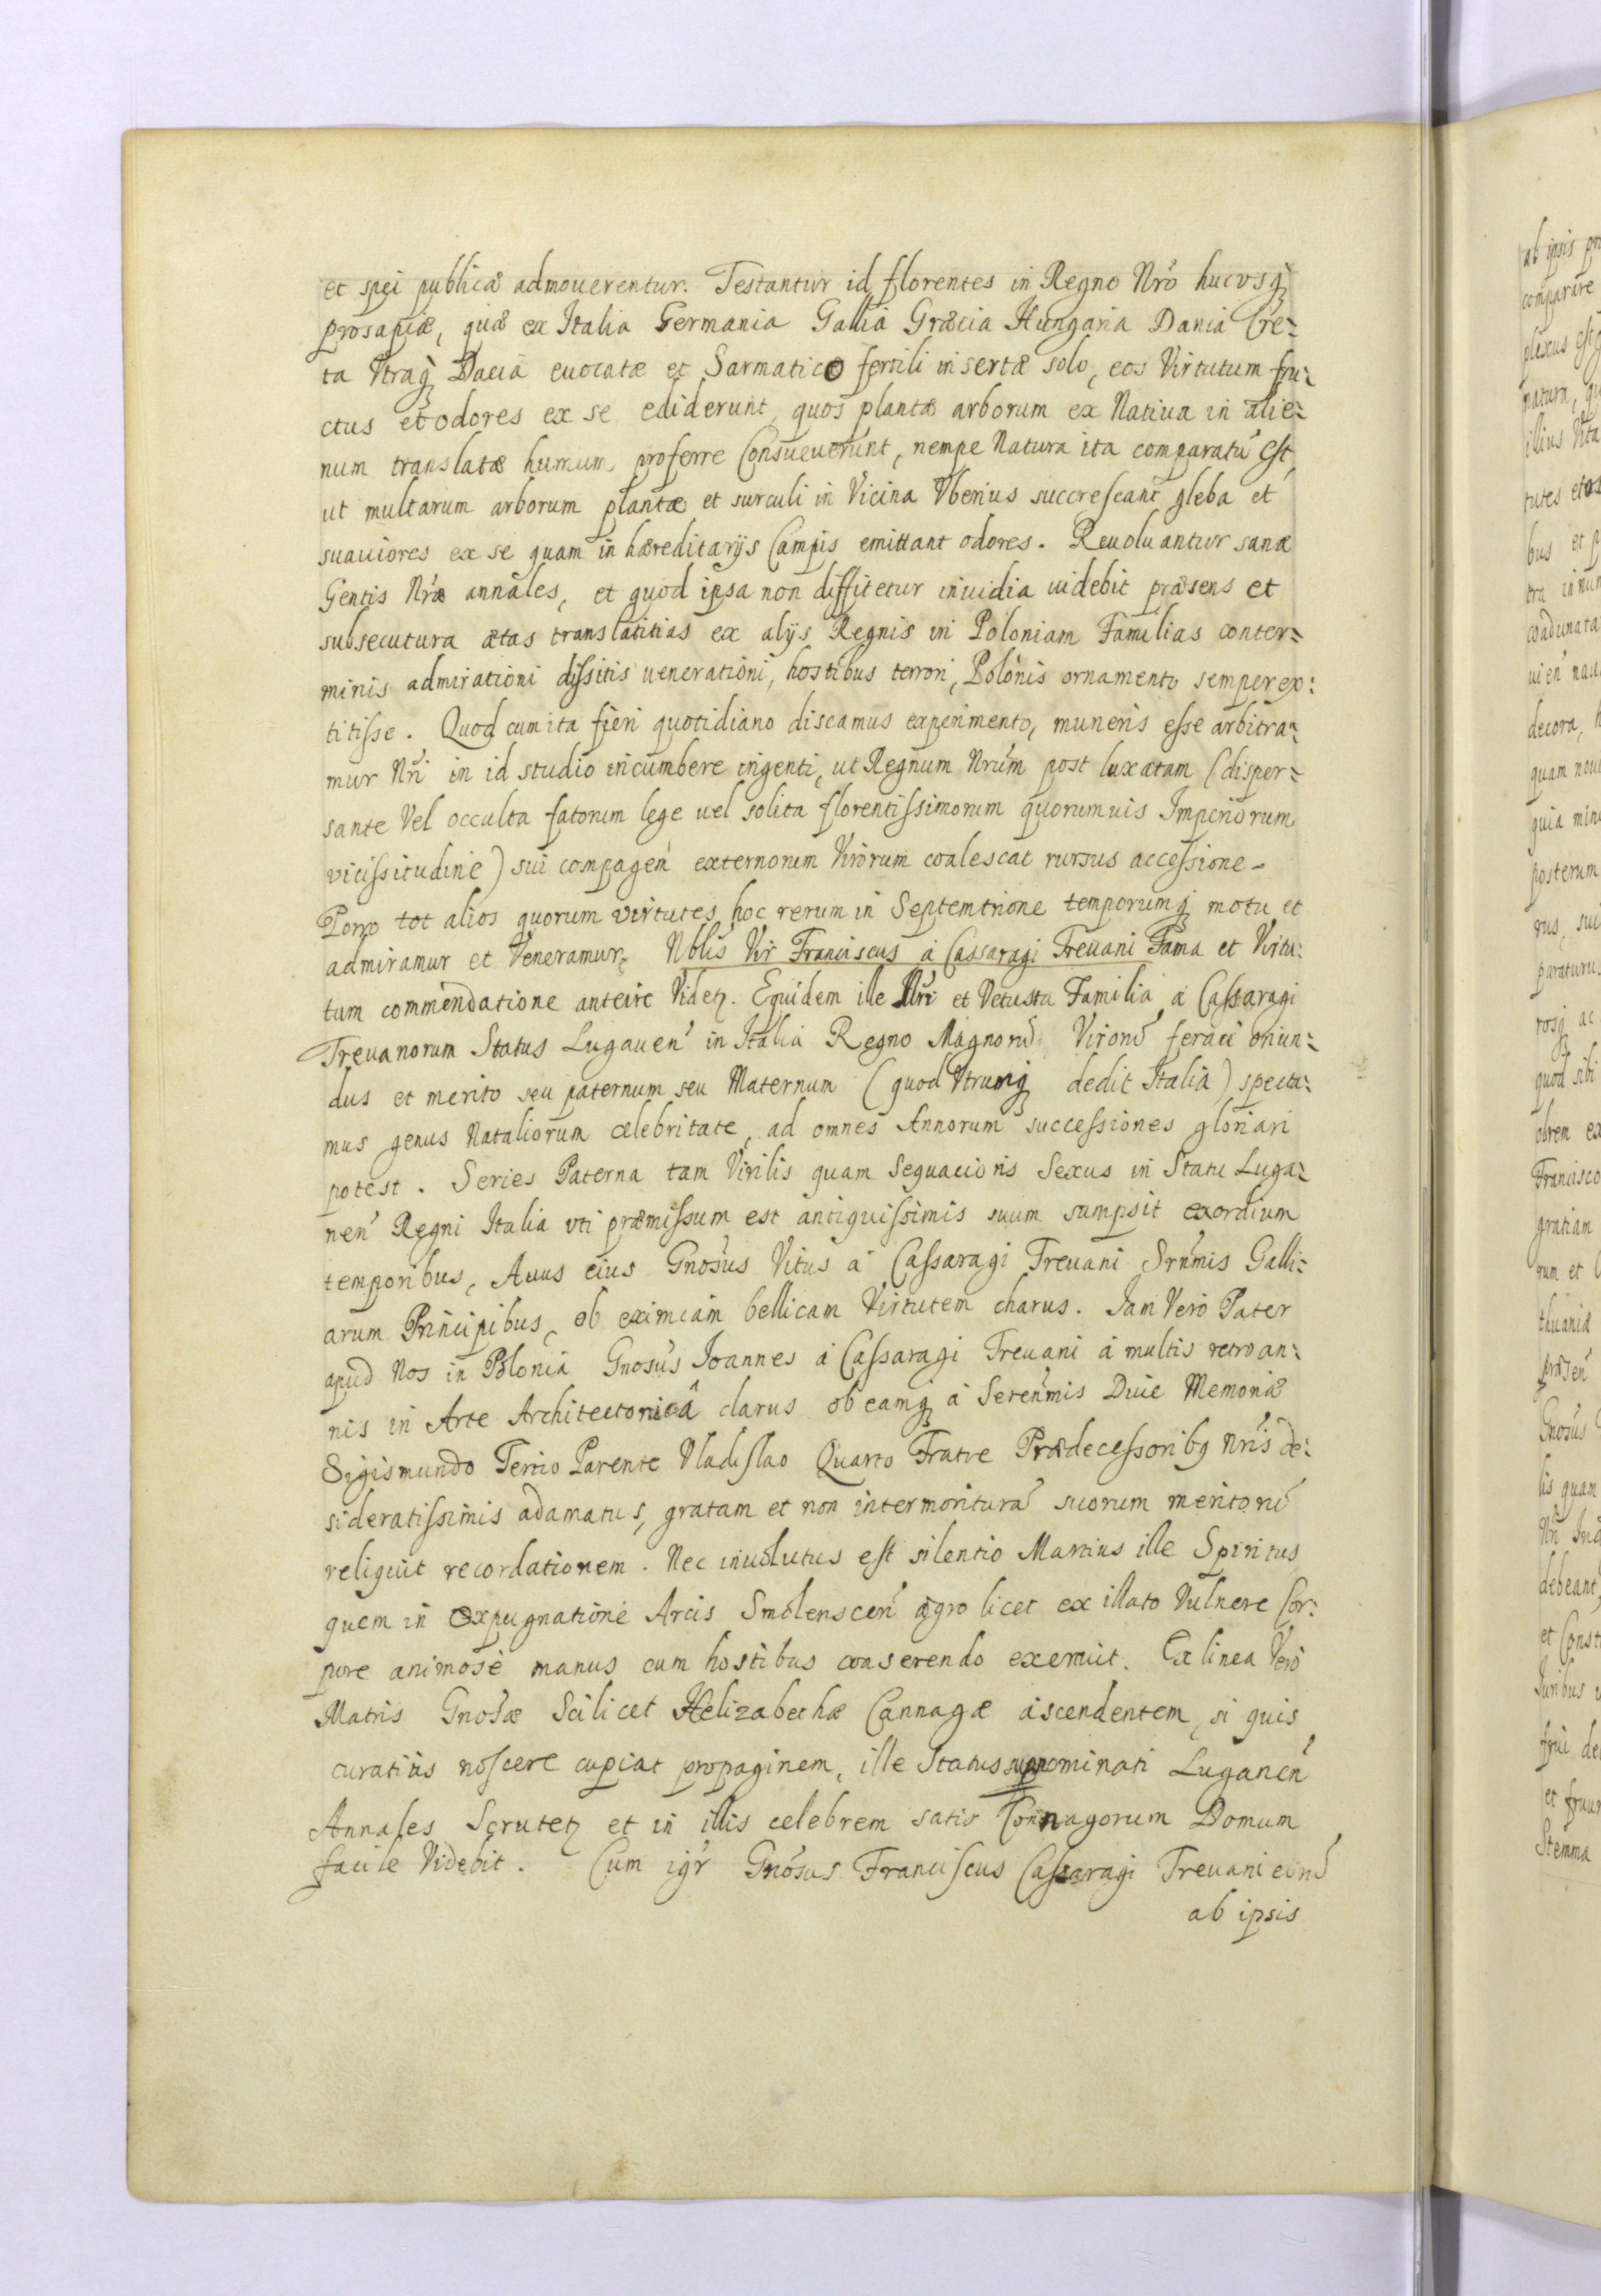 et spei publicæ admouerentur. Testantur id florentes in Regno Nrõ hucvsq̨
prosapiæ, quæ ex Italia Germania Gallia Græcia Hungaria Dania Cre-
ta Vtraq̨ Daciâ euocatæ et Sarmatico fertili insertæ solo, eos Virtutum fru-
ctus et odores ex se ediderunt, quos plantæ arborum ex Natiua in alie-
num translatæ humum proferre Consueuerunt, nempe Natura ita comparatũ est,
ut multarum arborum plantæ et surculi in Vicina Vberius succrescant gleba et
suauiores ex se quam in hæreditarijs Campis emittant odores. Reuoluantur sanæ
Gentis Nrǽ annales, et quod ipsa non diffitetur inuidia uidebit præsens et
subsecutura ætas translatitias ex alijs Regnis in Poloniam Familias conter-
minis admirationi dissitis uenerationi, hostibus terrori, Polonis ornamento semper ex:
titisse. Quod cum ita fieri quotidiano discamus experimento, muneris esse arbitra-
mur Nrĩ in id studio incumbere ingenti, ut Regnum Nrũm post luxatam (disper-
sante Vel occulta fatorum lege uel solita florentissimorum quorumuis Imperiorum
vicissitudine) sui compagem̃ externorum Virorum coalescat rursus accessione -
Porro tot alios quorum virtutes hoc rerum in Septemtrione temporumq̨ motu et
admiramur et Veneramur, Nblĩs Vir Franciscus à Cassaragi Treuani Fama et Virtu-
tum commendatione anteire Videtꝫ. Equidem ille Nrĩ et Vetusta Familia à Cassaragi
Treuanorum Status Lugauen̉ in Italia Regno Magnorũ Virorũ feraci oriun-
dus et merito seu paternum seu Maternum (quod Vtrumq̨ dedit Italia) specta-
mus genus Nataliorum celebritate, ad omnes Annorum successiones gloriari
potest. Series Paterna tam Virilis quam Sequacioris Sexus in Statu Luga-
nen̉ Regni Italia vti præmissum est antiquissimis suum sumpsit exordium
temporibus, Auus eius Gnosús Vitus à Cassaragi Treuani Srñmis Galli-
arum Principibus, ob eximiam bellicam Virtutem charus. Iam Vero Pater
apud Nos in Polonia Gnosús Joannes à Cassaragi Treuani à multis retro an-
nis in Arte Architectonicâ clarus ob eamq̨ à Sereñmis Diuæ Memoriæ
Sigismundo Tertio Parente Vladislao Quarto Fratre Prædecessoribꝫ Nrĩs de-
sideratissimis adamatus, gratam et non intermorituram̃ suorum meritorũ
reliquit recordationem. Nec inuolutus est silentio Martius ille Spiritus
quem in Expugnatione Arcis Smolenscen̉ ægro licet ex illato Vulnere Cor-
pore animosè manus cum hostibus conserendo exeruit. Ex linea Vero
Matris Gnosǽ Scilicet Helizabethæ Cannagæ ascendentem, si quis
curatiùs noscere cupiat propaginem, ille Status supranominati Luganen̉
Annales Scrutetꝫ et in illis celebrem satis Connagorum Domum
facile Videbit. Cum igr̃ Gnosús Franciscus Cassaragi Treuani eorũ
ab ipsis